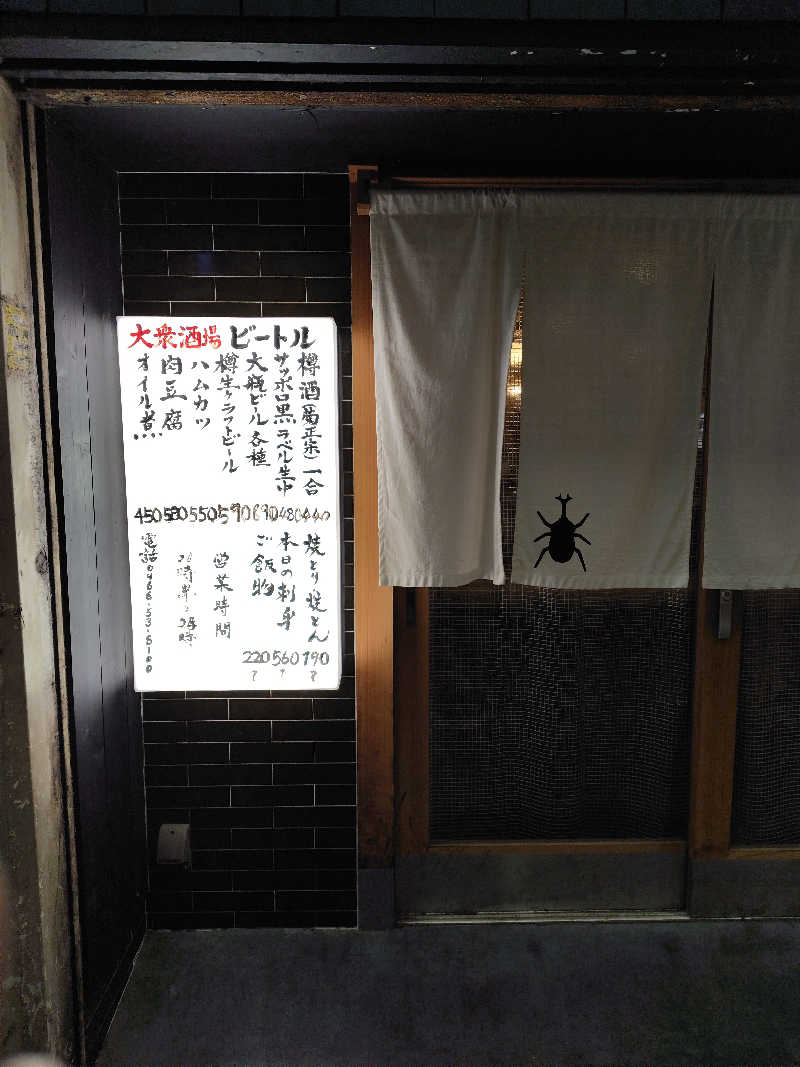 大衆酒場 ビートル
樽酒(菊正宗)一合 440
サッポロ黒ラベル生中 480
大瓶ビール各種 690
樽生クラフトビール 590
ハムカツ 550
肉豆腐
オイル煮 450
焼とり焼とん 190〜
本日の刺身 560〜
ご飯物 220〜
営業時間
電話